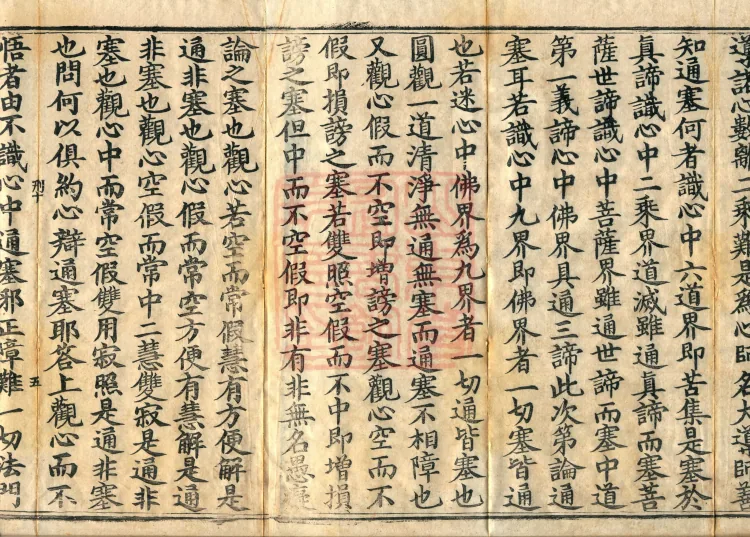 心數離二乘難是為心師名大導師善
知通塞何者識心中六道界即苦集是塞於
真諦識心中二乘界道滅雖通真諦而塞菩
薩世諦識心中菩薩界雖通世諦而塞中道
第一義諦心中佛界具通三諦此次第論通
塞耳若識心中九界即佛界者一切塞皆通
也若迷心中佛界為九界者一切通皆塞也
圓觀一道清淨無通無塞而通塞不相障也
又觀心假而不空即增謗之塞觀心空而不
假即損謗之塞若雙照空假而不中即增損
謗之塞但中而不空假即非有非無名愚癡
論之塞也觀心若空而常假慧有方便解是
通非塞也觀心假而常空方便有慧解是通
非塞也觀心空假而常中二慧雙寂是通非
塞也觀心中而常空假雙用寂照是通非塞
也問何以俱約心辯通塞耶答上觀心而不
刑十 五
悟者由不識心中通塞邪正障難一切法門